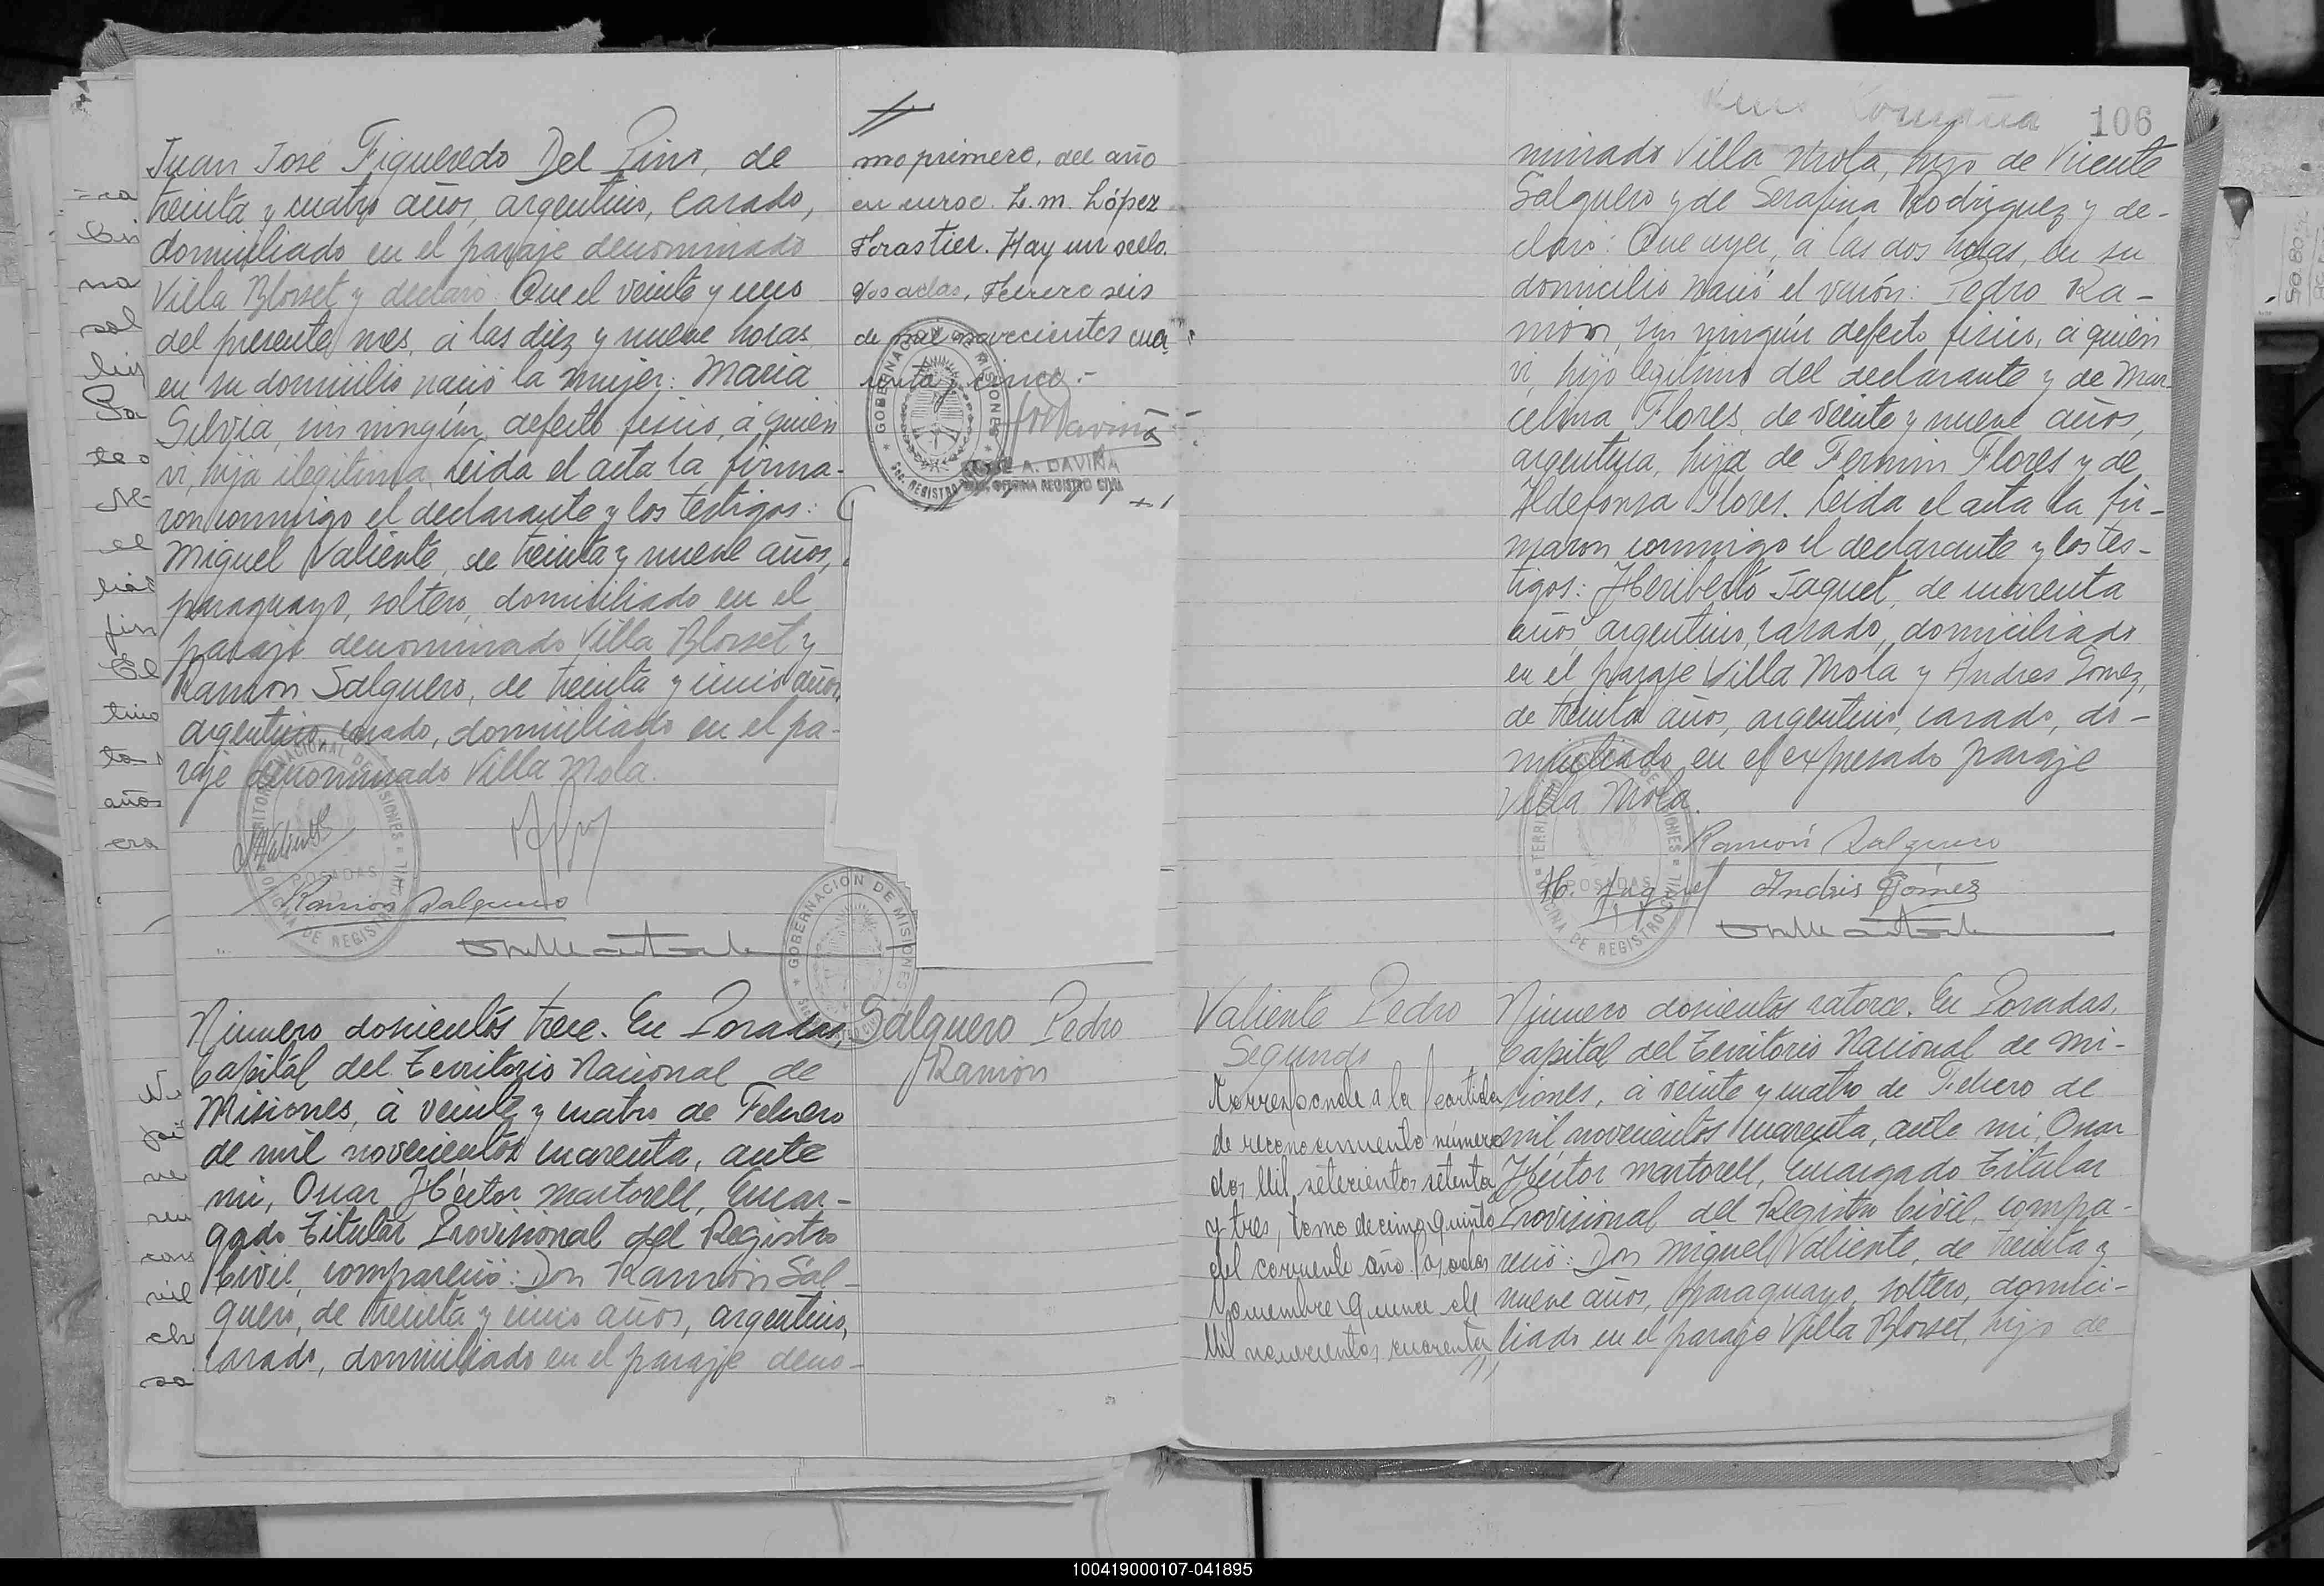 Juan José Figueredo Del Pino, de
treinta y cuatro años, argentino, casado,
domiciliado en el paraje denominado
Villa Blosset y declaró: Que el veinte y uno
del presente mes, á las diez y nueve horas
en su domicilio nació la mujer: Maria
Silvia, sin ningún defecto fisico, á quien
vi, hija ilegitima. Leida el acta la firma-
ron conmigo el declarante y los testigos:
Miguel Valiente, de treinta y nueve años,
paraguayo, soltero, domiciliado en el
paraje denominado Villa Blosset y
Ramon Salguero, de treinta y cinco años,
argentino, casado, domiciliado en el pa-
raje denominado Villa Mola.
MValiente
Ramón Salguero
mo primero, del año
en curso. L. M. López
Forastier. Hay un sello.
Posadas, Febrero seis
de mil novecientos cua-
renta y cinco.-
GOBERNACION DE MISIONES
Sec. REGISTRO
JOSE A. DAVIÑA
OFICINA REGISTRO CIVIL
TERRITORIO NACIONAL DE MISIONES
POSADAS
OFICINA DE REGISTRO CIVIL
GOBERNACION DE MISIONES
Número doscientos trece. En Posadas,
Capital del Territorio Nacional de
Misiones, á veinte y cuatro de Febrero
de mil novecientos cuarenta, ante
mi, Omar Héctor Martorell, Encar-
gado Titular Provisional del Registro
Civil, compareció: Don Ramón Sal-
guero, de treinta y cinco años, argentino,
casado, domiciliado en el paraje deno-
Salguero Pedro
Ramón
106
minado Villa Mola, hijo de Vicente
Salguero y de Serafina Rodriguez y de-
claró: Que ayer, á las dos horas, en su
domicilio nació el varón: Pedro Ra-
món, sin ningún defecto fisico, á quien
vi, hijo legitimo del declarante y de Mar-
celina Flores, de veinte y nueve años,
argentina, hija de Fermin Flores y de
Ildefonsa Flores. Leida el acta la fir-
maron conmigo el declarante y los tes-
tigos: Heriberto Jaquet, de cuarenta
años, argentino, casado, domiciliado
en el paraje Villa Mola y Andres Gomez,
de treinta años, argentino, casado, do-
miciliado en el expresado paraje
Villa Mola.
Ramón Salguero
H. Jaquet Andrés Gómez
TERRITORIO NACIONAL DE MISIONES
POSADAS
OFICINA DE REGISTRO CIVIL
Valiente Pedro
Segundo
Corresponde a la partida
de reconocimiento número
dos mil setecientos setenta
y tres, tomo decimo quinto
del corriente año. Posadas
Noviembre quince de
mil novecientos cuarenta
Número doscientos catorce. En Posadas,
Capital del Territorio Nacional de Mi-
siones, á veinte y cuatro de Febrero de
mil novecientos cuarenta, ante mi, Omar
Héctor Martorell, Encargado Titular
Provisional del Registro Civil, compa-
reció: Don Miguel Valiente, de treinta y
nueve años, paraguayo, soltero, domici-
liado en el paraje Villa Blosset, hijo de
100419000107-041895